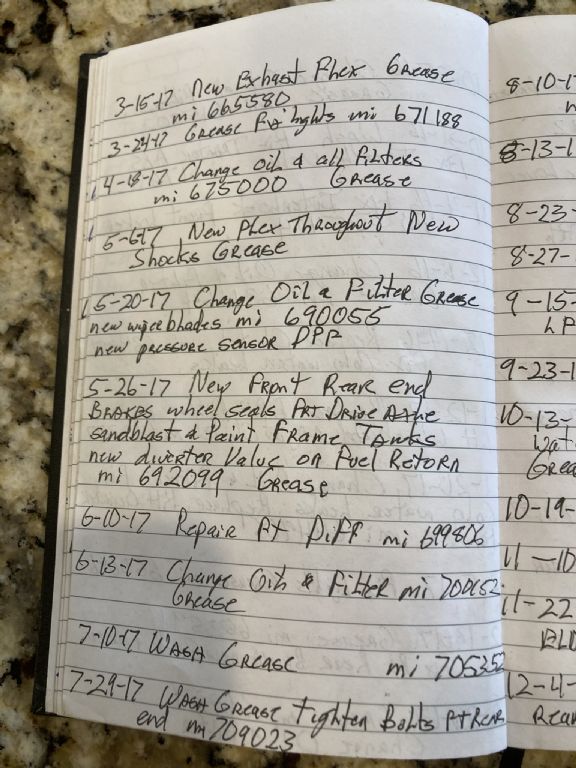 3-15-17 New Exhast Phex Grease
mi 665580
3-24-17 Grease Rx lights mi 671188
4-18-17 Change oil & all Filters
mi 675000 Grease
5-6-17 New Phex Throughout New
Shocks Grease
5-20-17 Change Oil & Filter Grease
new wiper blades mi 690055
new pressure sensor DPF
5-26-17 New Front Rear end
Brakes wheel seals Frt Drive Axle
sandblast & Paint Frame Tanks
new diverter Value on Fuel Retorn
mi 692099 Grease
6-10-17 Repair Ft Diff mi 699806
6-13-17 Change Oil & Filter mi 700152
Grease
7-10-17 Wash Grease mi 705352
7-29-17 Wash Grease tighten Bolts Ft Rear
end mi 709023
8-10-1
8-13-1
8-23-
8-27-
9-15-
LP
9-23-1
10-13-
Wat
Grea
10-19-
11-10
11-22
BLO
12-4-
Rear